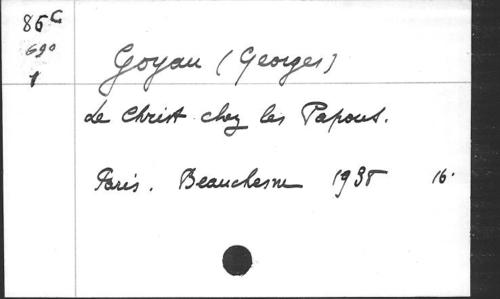 86 C
690
1
Goyau (Georges)
Le Christ chez les Papous.
Paris. Beauchesne 1938 16°